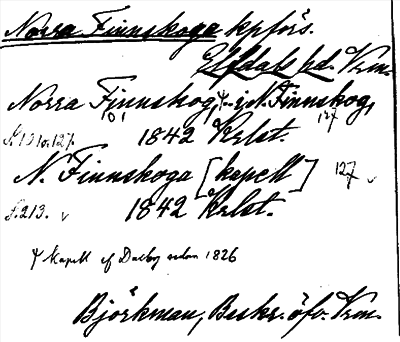 Norra Finnskoga kpförs.
Älfdals hd. Vrm.
Norra Finnskog, i N. Finnskog,
101 127
S. 101 o. 127. 1842 Krlst.
N. Finnskoga [kapell] 127 v
S. 213. v 1842 Krlst.
kapell af Dalby sedan 1826
Björkman, Beskr. öfv. Vrm.